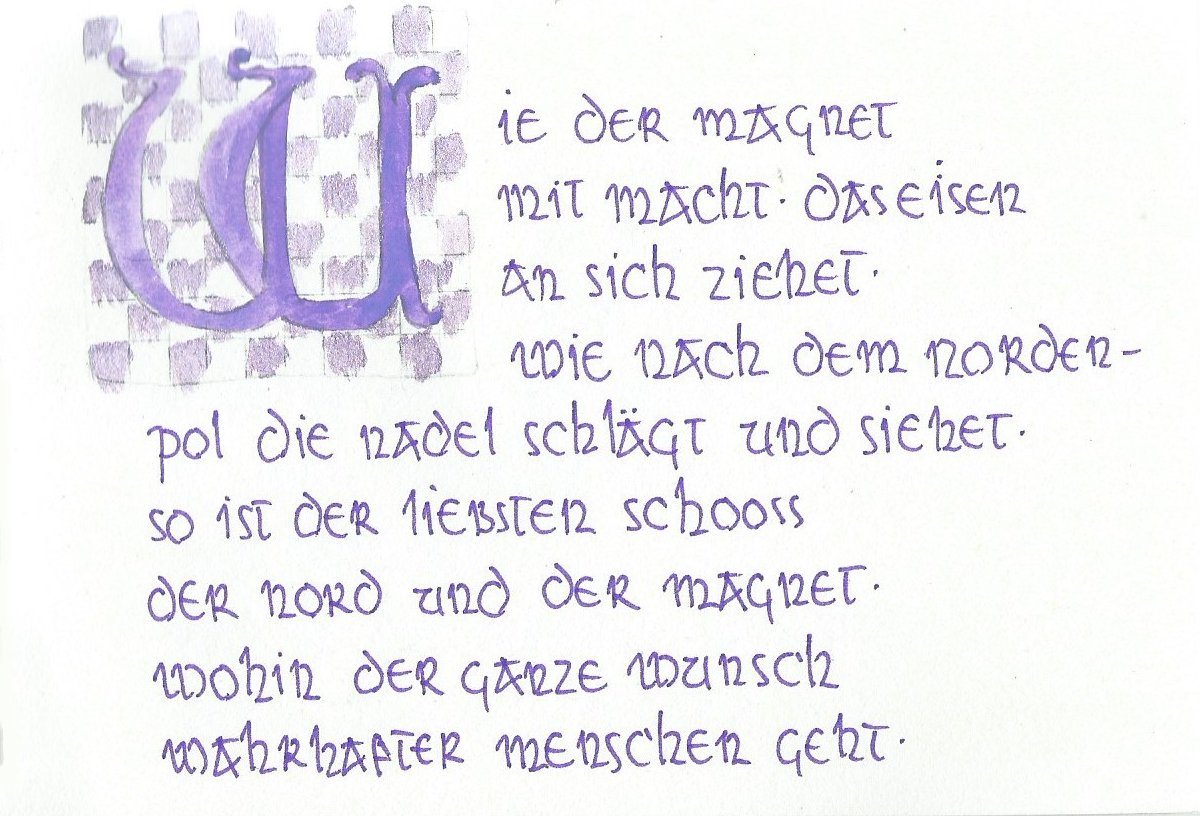 Wie der Magnet
mit Macht· das Eisen
an sich ziehet·
wie nach dem Norden-
pol die Nadel schlägt und siehet·
so ist der Liebsten Schooss
der Nord und der Magnet·
wohin der ganze Wunsch
wahrhafter Menschen geht·